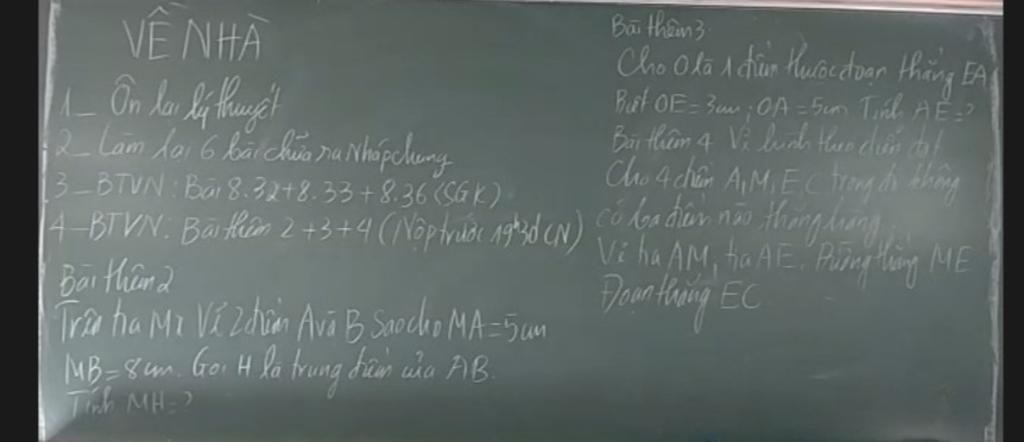 VỀ NHÀ
1_ Ôn lại lý thuyết
2_ Làm lại 6 bài chữa ra Nháp chung
3_BTVN: Bài 8.32+8.33+8.36 (SGK)
4_BTVN: Bài thêm 2+3+4 (Nộp trước 19h30 CN)
Bài thêm 2
Trên tia Mx Vẽ 2 điểm A và B sao cho MA=5cm
MB=8cm. Gọi H là trung điểm của AB.
Tính MH=?
Bài thêm 3.
Cho O là 1 điểm thuộc đoạn thẳng EA
Biết OE=3cm; OA=5cm Tính AE=?
Bài thêm 4 Vẽ hình theo diễn đạt
Cho 4 điểm A, M, E, C trong đó không
có ba điểm nào thẳng hàng.
Vẽ tia AM, tia AE, Đường thẳng ME
Đoạn thẳng EC